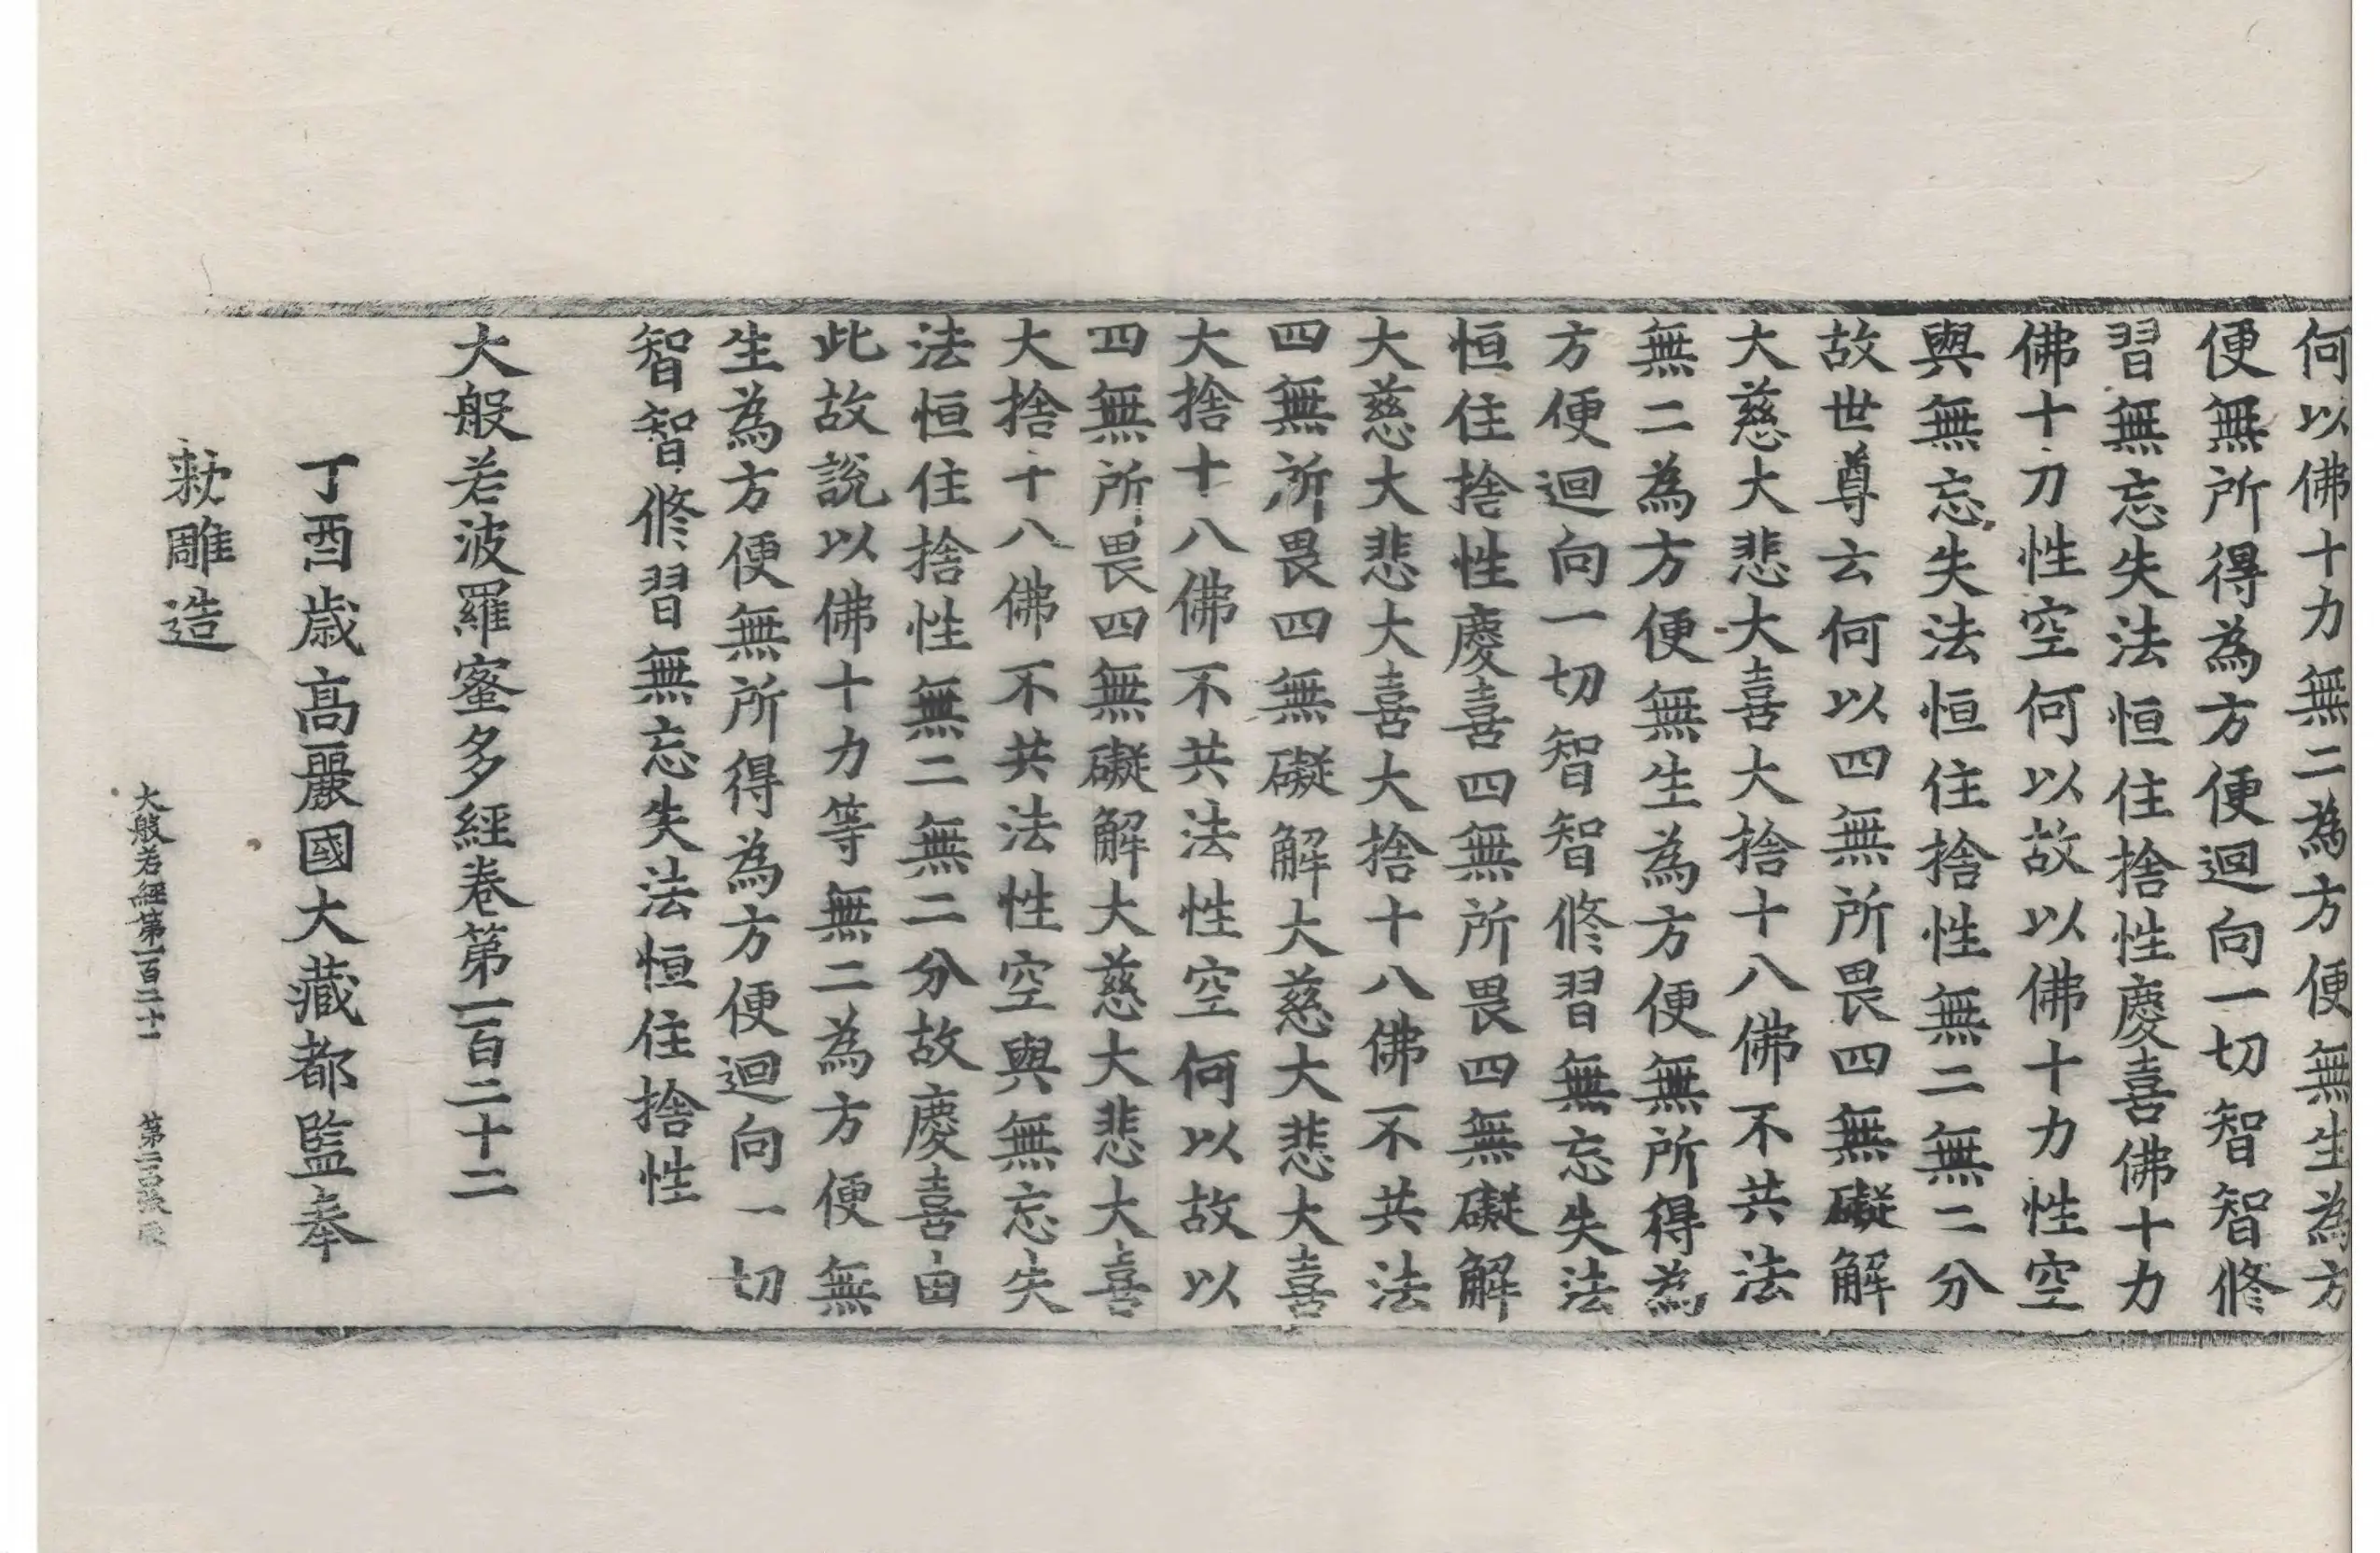 何以佛十力無二為方便無生為方
便無所得為方便迴向一切智智修
習無忘失法恒住捨性慶喜佛十力
佛十刀性空何以故以佛十力性空
與無忘失法恒住捨性無二無二分
故世尊云何以四無所畏四無礙解
大慈大悲大喜大捨十八佛不共法
無二為方便無生為方便無所得為
方便迴向一切智智修習無忘失法
恒住捨性慶喜四無所畏四無礙解
大慈大悲大喜大捨十八佛不共法
四無所畏四無礙解大慈大悲大喜
大捨十八佛不共法性空何以故以
四無所畏四無礙解大慈大悲大喜
大捨十八佛不共法性空與無忘失
法恒住捨性無二無二分故慶喜由
此故說以佛十力等無二為方便無
生為方便無所得為方便迴向一切
智智修習無忘失法恒住捨性
大般若波羅蜜多經卷第一百二十二
丁酉歲高麗國大藏都監奉
勑雕造
大般若經第一百二十二 第二百張